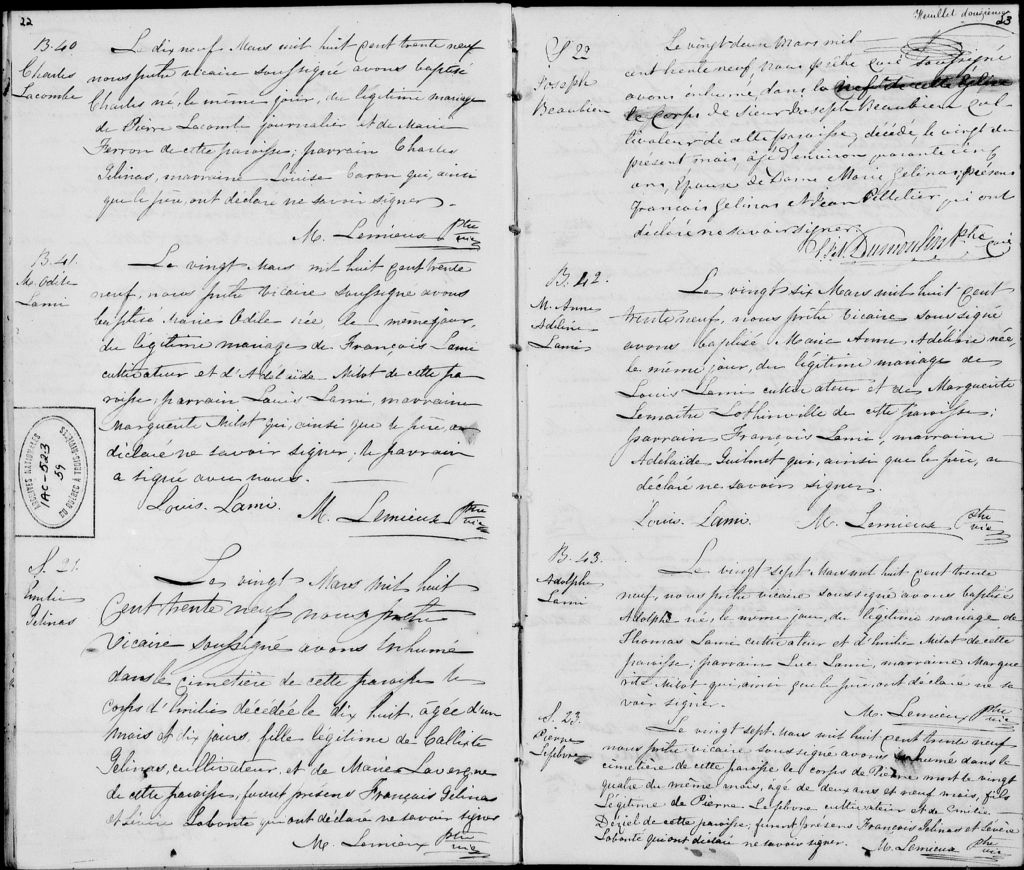 22
B. 40
Charles
Lacombe
Le dix neuf Mars mil huit cent trente neuf
nous prêtre vicaire soussigné avons baptisé
Charles né, le même jour, du légitime mariage
de Pierre Lacombe journalier et de Marie
Ferron de cette paroisse; parrain Charles
Gelinas, marraine Louise Caron qui, ainsi
que le père, ont déclaré ne savoir signer.
M. Lemieux Ptre
vic
B. 41.
M. Odile
Lami
Le vingt Mars mil huit cent trente
neuf, nous prêtre vicaire soussigné avons
baptisé Marie Odile née, le même jour,
du légitime mariage de François Lami
cultivateur et d'Adélaïde Milot de cette pa
roisse, parrain Louis Lami, marraine
Marguerite Milot qui, ainsi que le père, a
déclaré ne savoir signer; le parrain
a signé avec nous.
Louis. Lami.
M. Lemieux Ptre
vic
ARCHIVES NATIONALES
DU QUÉBEC À TROIS-RIVIÈRES
1AC-523
59
S. 21.
Emilie
Gelinas
Le vingt Mars mil huit
cent trente neuf nous prêtre
vicaire soussigné avons inhumé
dans le cimetière de cette paroisse le
corps d'Emilie décédée le dix huit, agée d'un
mois et dix jours, fille légitime de Callixte
Gelinas, cultivateur, et de Marie Lavergne
de cette paroisse, furent présens François Gelinas
et Labonté qui ont déclaré ne savoir signer
M. Lemieux Ptre
vic
Feuillet douzieme
23
S 22
Joseph
Beaubien
Le vingt deux Mars mil
cent trente neuf, nous prêtre curé soussigné
avons inhumé, dans la nef de cette Eglise
le corps de Sieur Joseph Beaubien cul
tivateur de cette paroisse, décédé, le vingt du
présent mois, âgé d'environ
ans, Epoux de Dame Marie Gelinas; présens
François Gelinas et Jean Pelletier qui ont
déclaré ne savoir signer.
Dumoulin Ptre
B. 42.
M. Anne
Adéline
Lami
Le vingt six Mars mil huit cent
trente neuf, nous prêtre vicaire soussigné
avons baptisé Marie Anne Adéline née,
le même jour, du légitime mariage de
Louis Lami cultivateur et de Marguerite
Lemaitre Lothinville de cette paroisse;
parrain François Lami, marraine
Adélaide Guilmet qui, ainsi que le père, a
déclaré ne savoir signer.
Louis. Lami.
M. Lemieux Ptre
vic
B. 43.
Adolphe
Lami
Le vingt sept Mars mil huit cent trente
neuf, nous prêtre vicaire soussigné avons baptisé
Adolphe né, le même jour, du légitime mariage de
Thomas Lami cultivateur et d'Emilie Milot de cette
paroisse; parrain Luc Lami, marraine Margue
rite Milot qui, ainsi que le père, ont déclaré ne sa
voir signer.
M. Lemieux Ptre
vic
S. 23.
Pierre
Lefebvre
Le vingt sept Mars mil huit cent trente neuf
nous prêtre vicaire soussigné avons inhumé dans le
cimetière de cette paroisse le corps de Pierre mort le vingt
quatre du même mois, âgé de deux ans et neuf mois, fils
Légitime de Pierre Lefebvre cultivateur et de Emilie
Deziel de cette paroisse; furent présens François Gelinas et Sévère
Labonté qui ont déclaré ne savoir signer.
M. Lemieux Ptre
vic